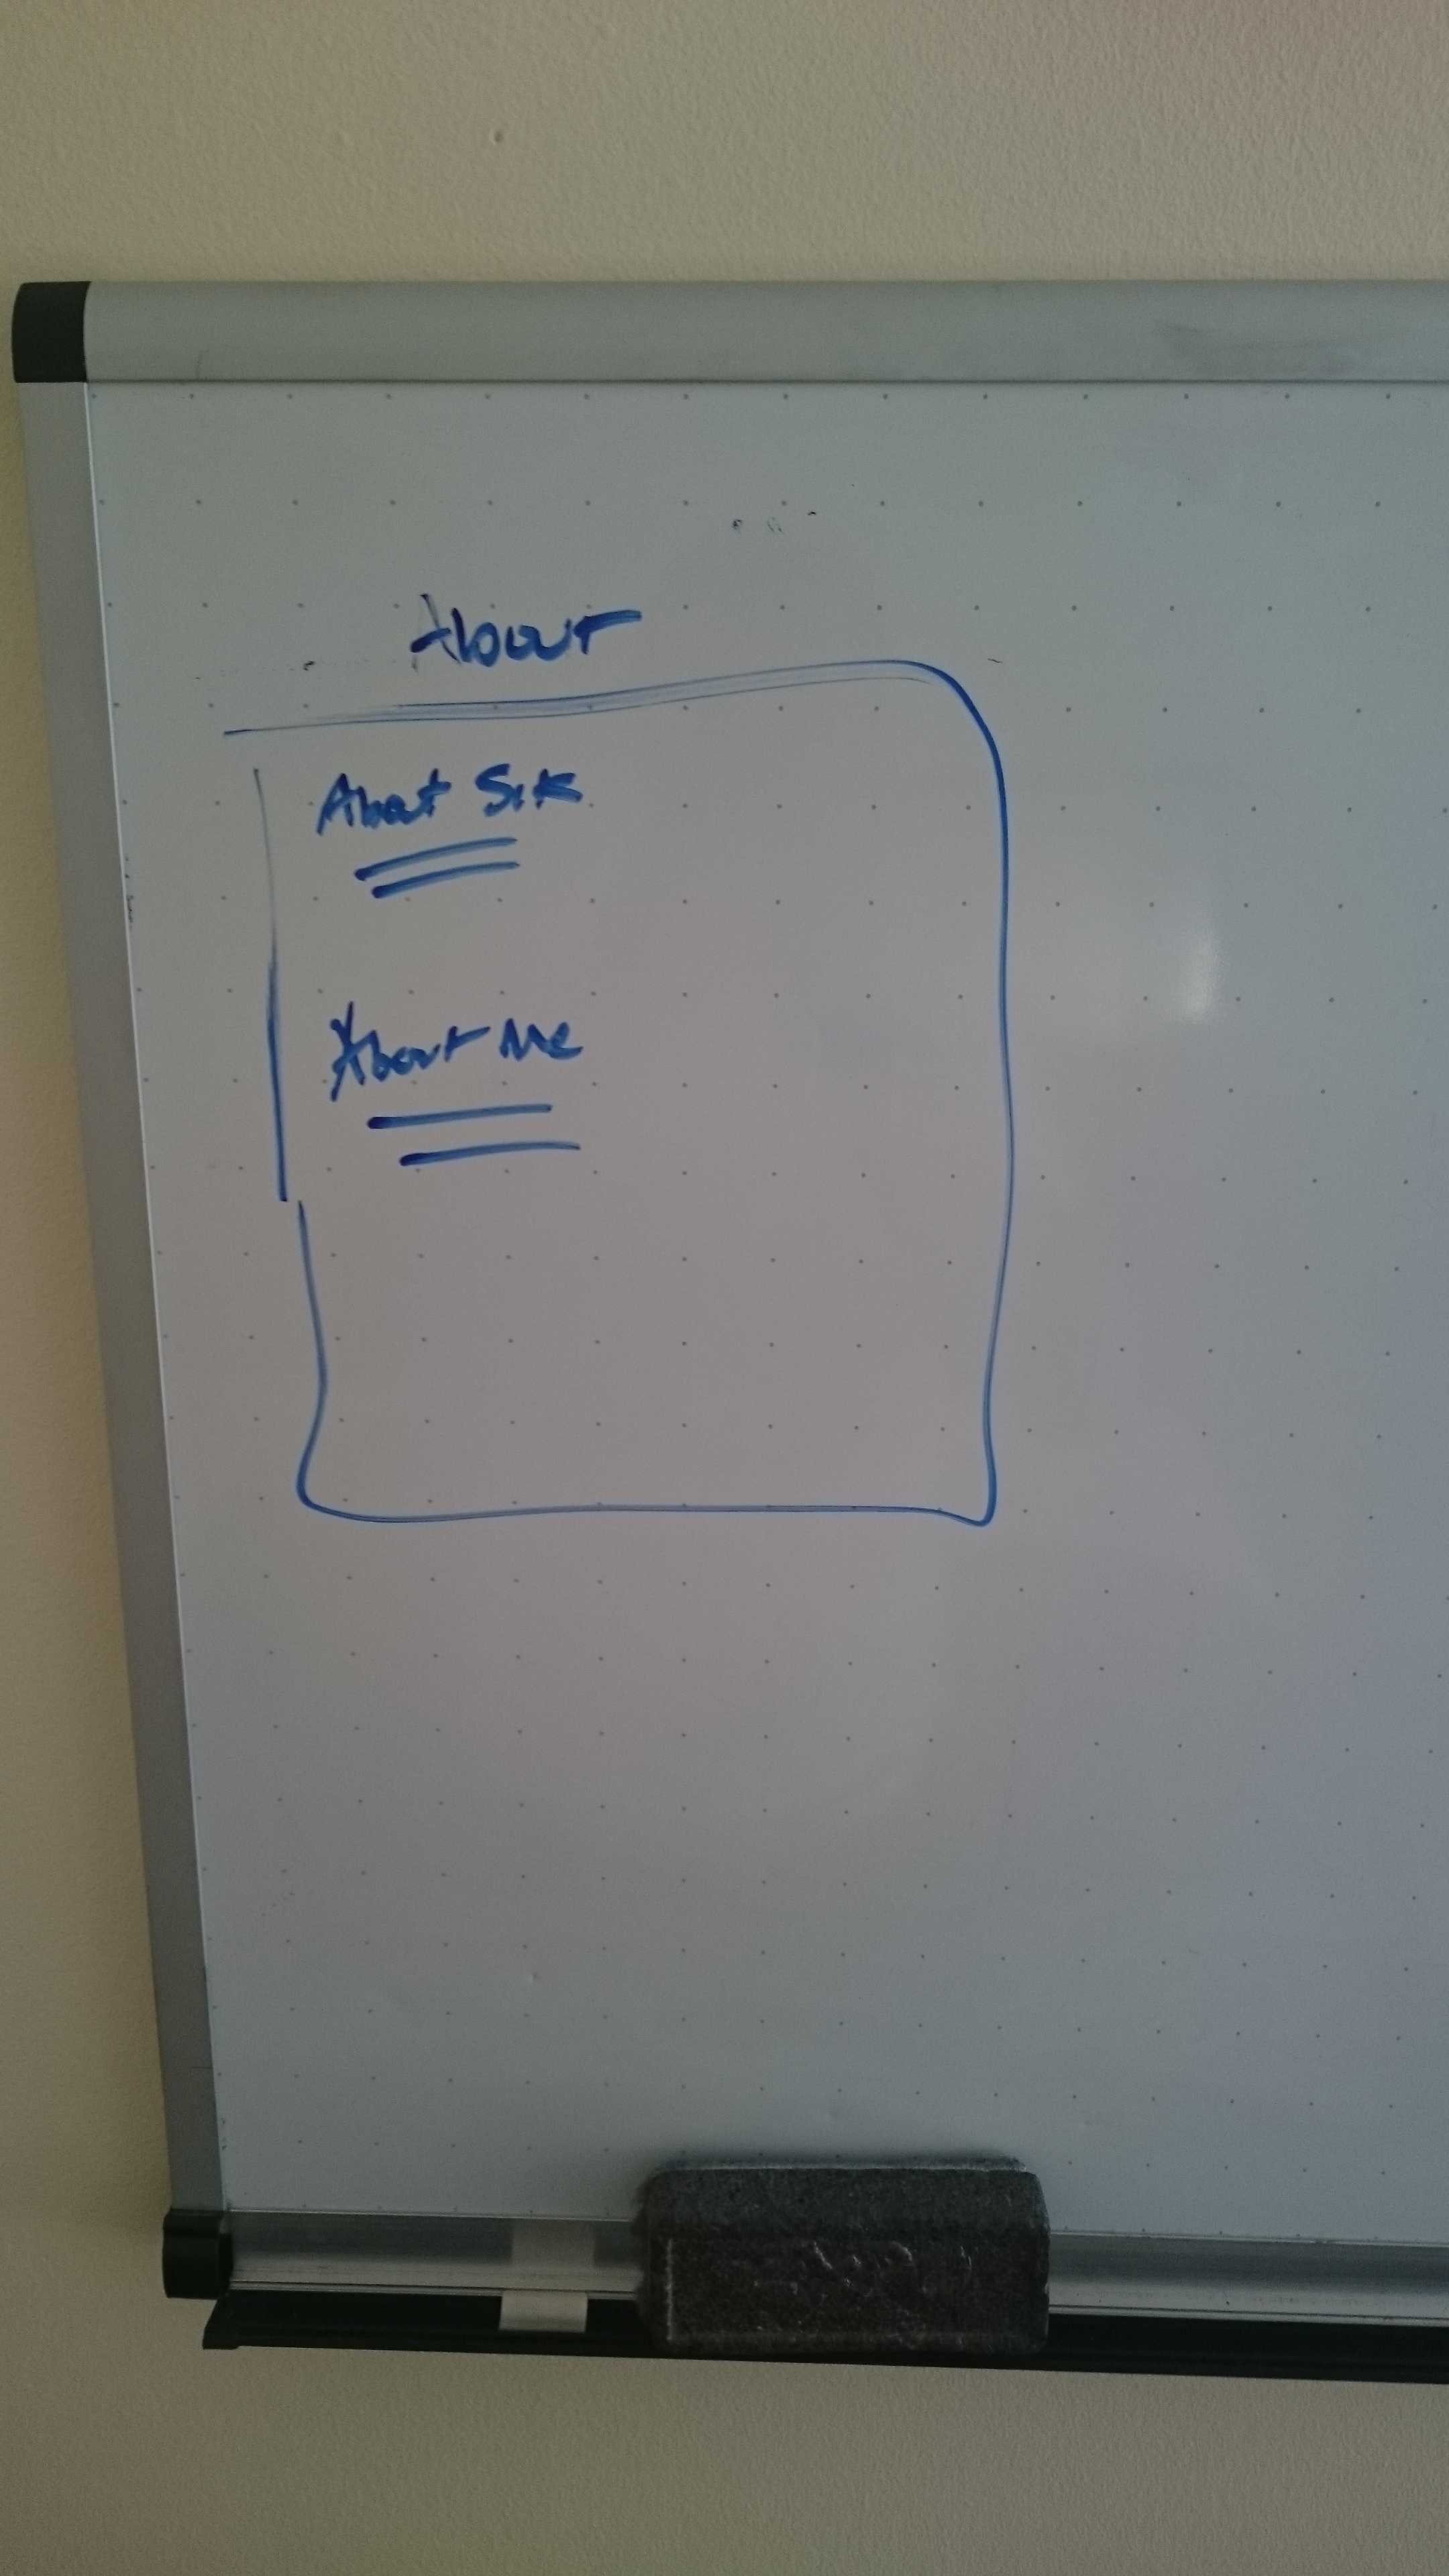 About
About Site
About Me